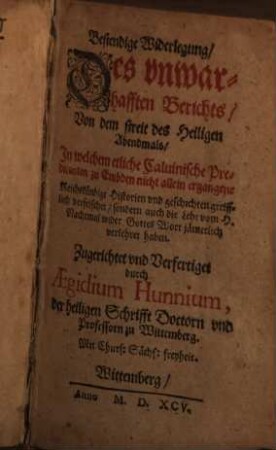 Bestendige Widerlegung/
Des vnwar-
hafften Berichts/
Von dem streit des Heiligen
Abendmals/
In welchem etliche Caluinische Pre-
dicanten zu Embden nicht allein ergangene
Reichskündige Historien vnd geschichten greiff-
lich verfelschet/ sondern auch die Lehr vom H.
Nachtmal wider Gottes Wort jämerlich
verkehret haben.
Zugerichtet vnd Verfertiget
durch
Ægidium Hunnium,
der heiligen Schrifft Doctorn vnd
Professorn zu Wittemberg.
Mit Churf: Sächs: freyheit.
Wittemberg/
Anno M. D. XCV.